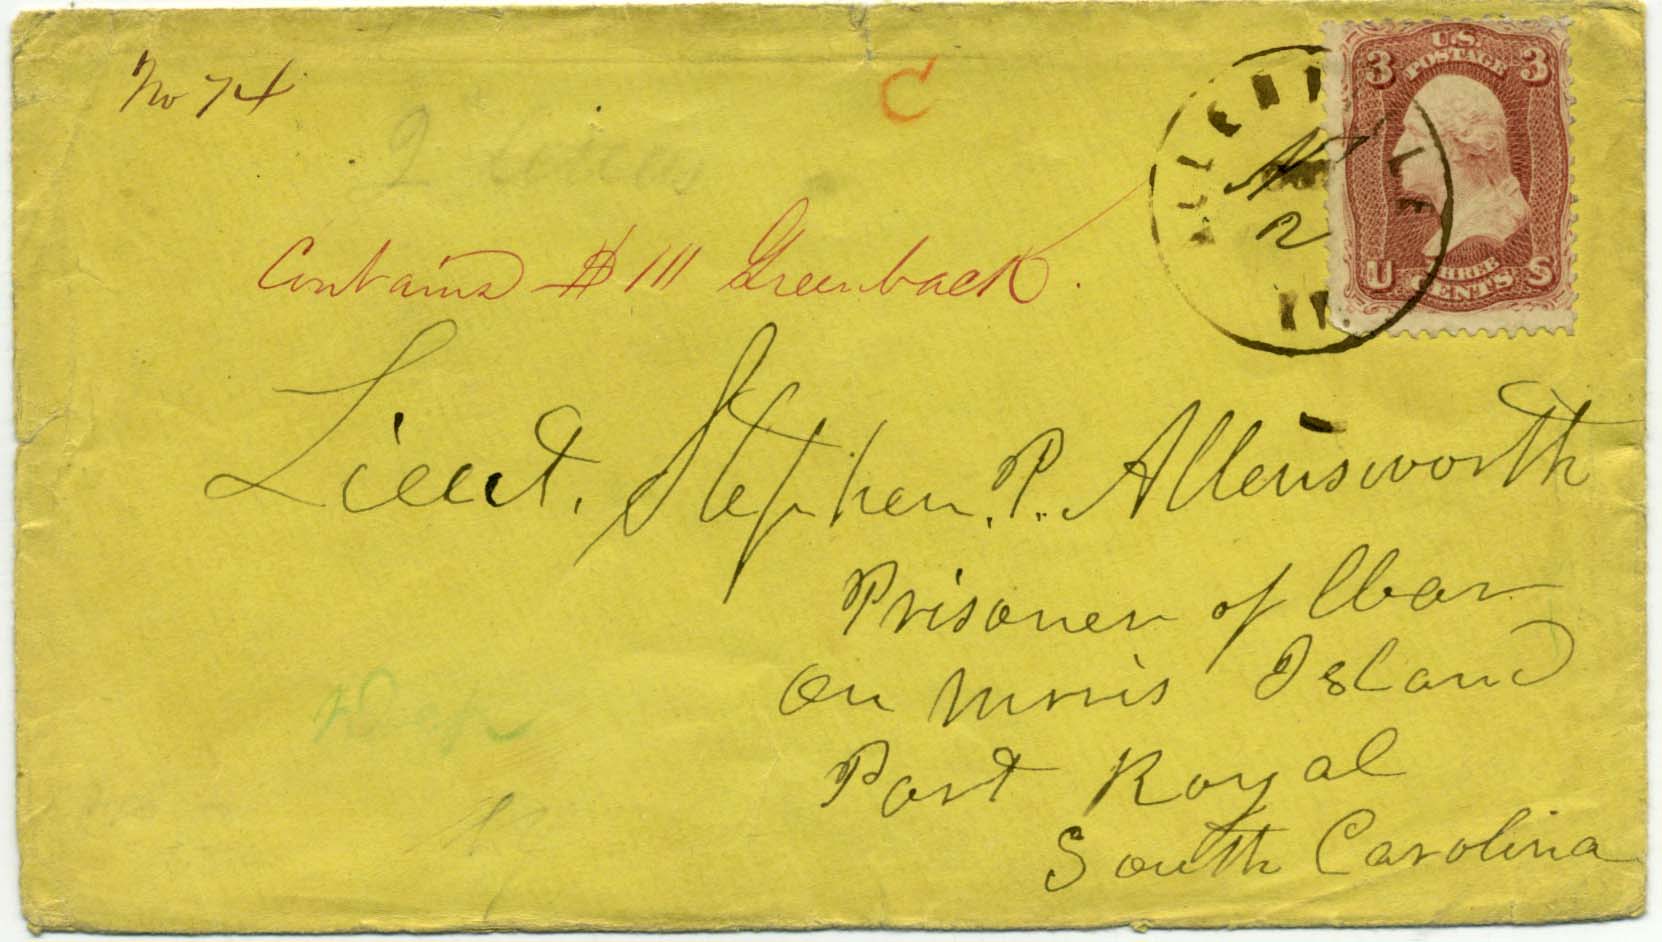 No 74
C
Contains $ 111 Greenback.
ALLENSVILLE
2
KY.
3 U.S. POSTAGE 3
U THREE CENTS S
Lieut. Stephen. P. Allensworth
Prisoner of War
On Morris Island
Port Royal
South Carolina